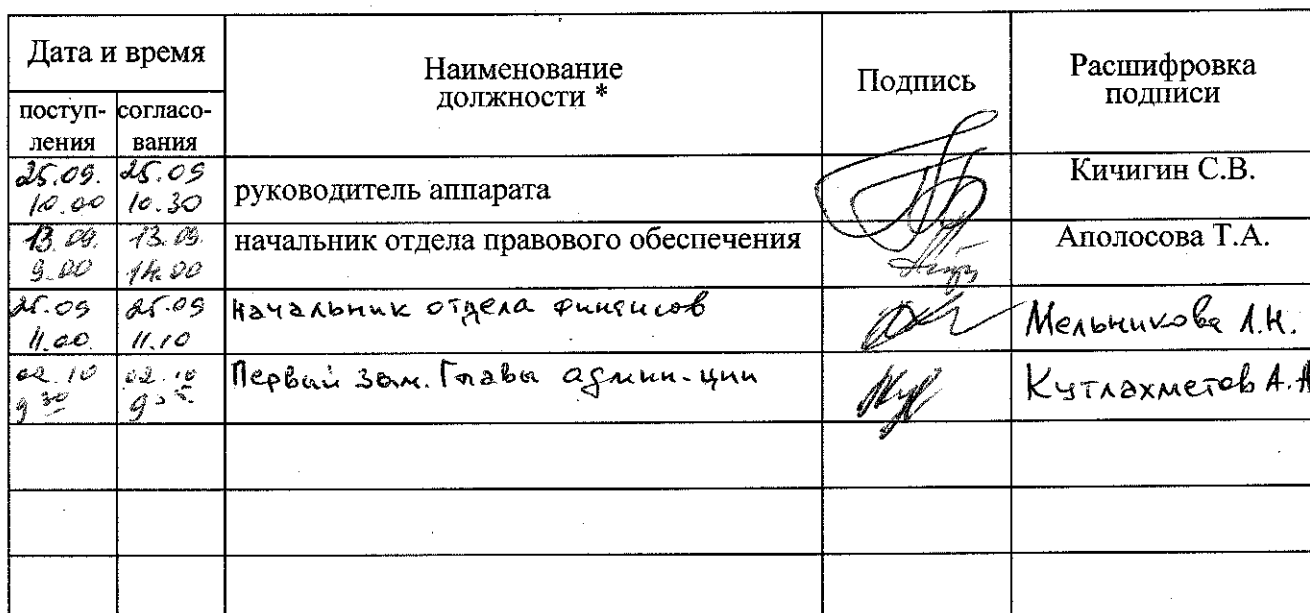 Дата и время
Наименование должности *
Подпись
Расшифровка подписи
поступ-ления
согласо-вания
25.09. 10.00
25.09 10.30
руководитель аппарата
Кичигин С.В.
13.09. 9.00
13.09. 14.00
начальник отдела правового обеспечения
Аполосова Т.А.
25.09 11.00
25.09 11.10
начальник отдела финансов
Мельникова Л.Н.
02.10 9 30
02.10
Первый зам. Главы админ-ции
Кутлахметов А.А